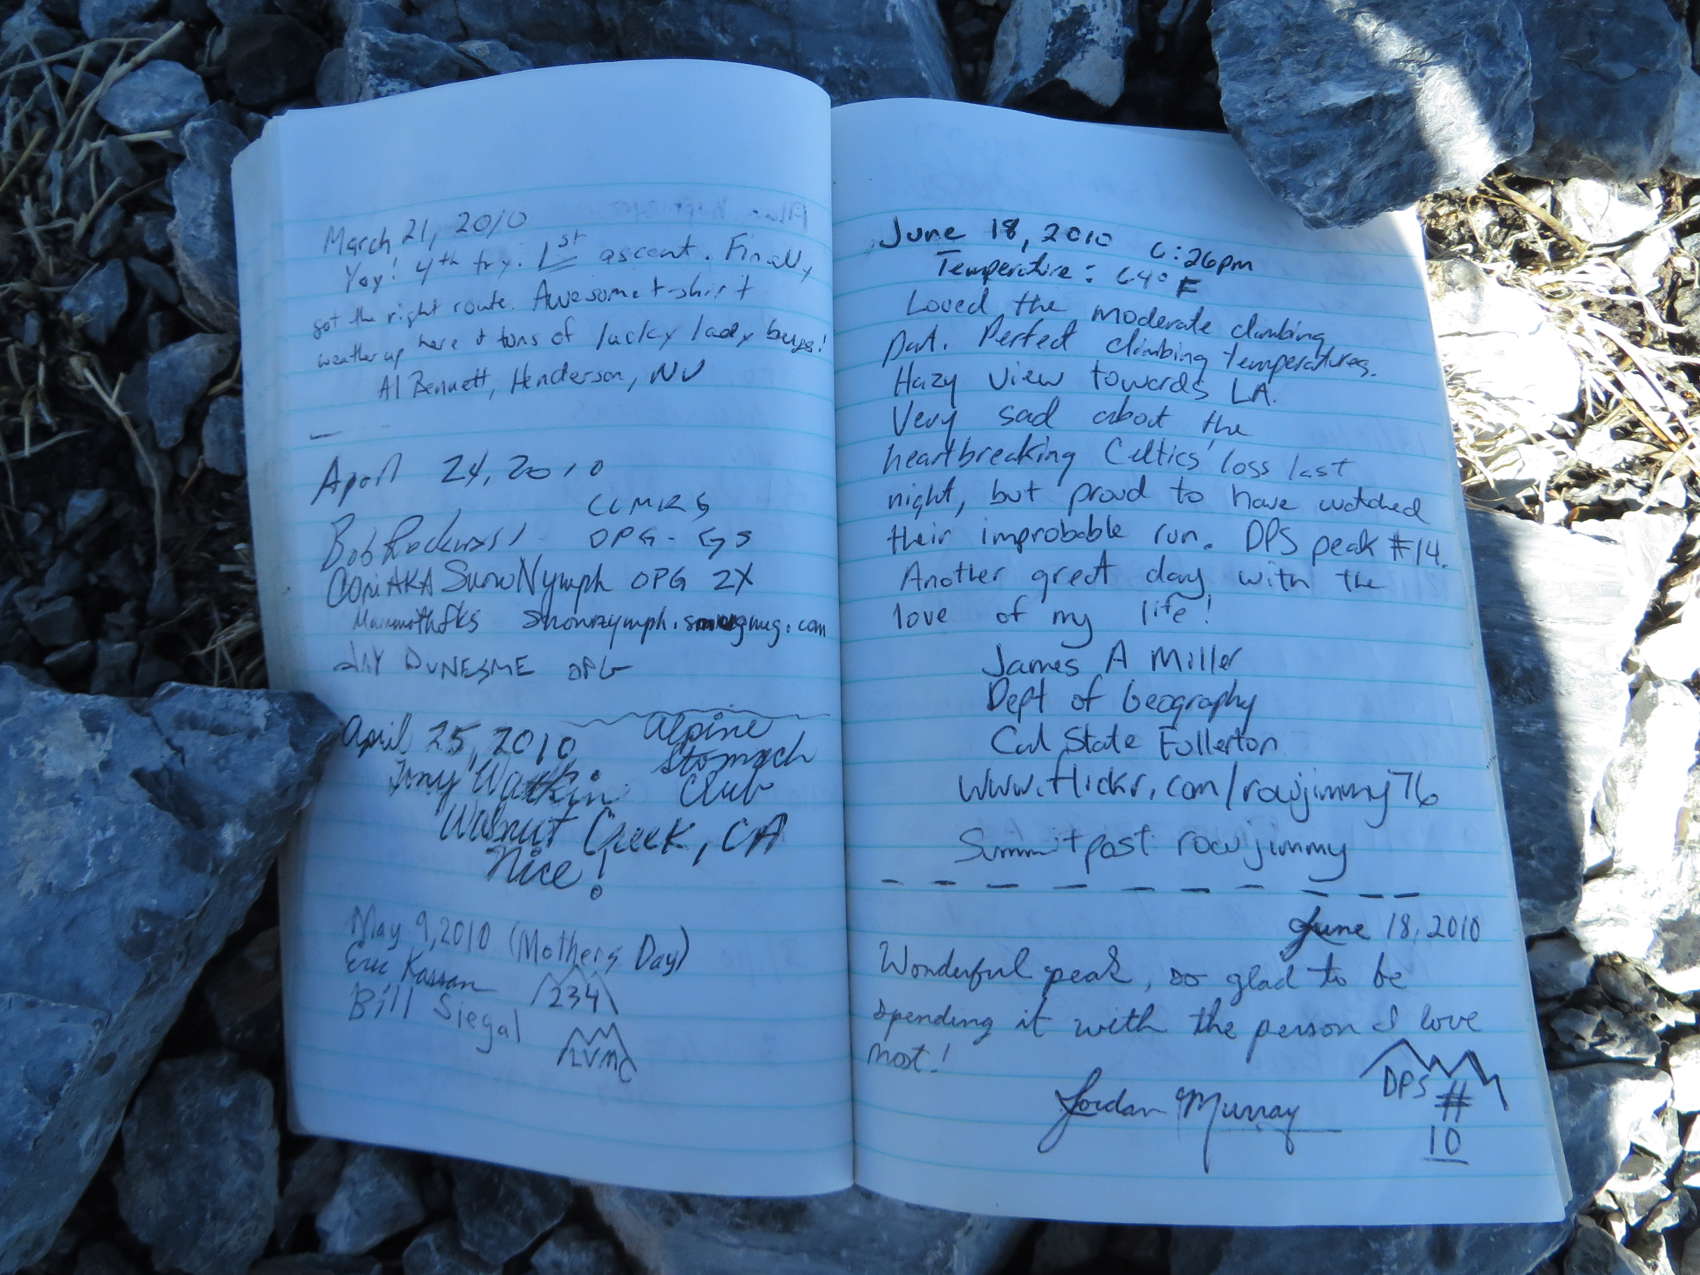 March 21, 2010
Yay! 4th try. 1st ascent. Finally
got the right route. Awesome t-shirt
weather up here & tons of lucky lady bugs!
Al Bennett, Henderson, NV
April 24, 2010
Bob
DPG - GS
AKA SnowNymph DPG 2X
snownymph.smugmug.com
DPG
April 25, 2010
Alpine
Stomach
Club
Tony Watkin
Walnut Creek, CA
Nice!
May 9, 2010 (Mothers Day)
Eric Kassan
234
Bill Siegal
LVMC
June 18, 2010 6:26pm
Temperature: 64° F
Loved the moderate climbing
part. Perfect climbing temperatures.
Hazy view towards LA.
Very sad about the
heartbreaking Celtics' loss last
night, but proud to have watched
their improbable run. DPS peak #14.
Another great day with the
love of my life!
James A Miller
Dept of Geography
Cal State Fullerton
www.flickr.com/rowjimmy76
Summitpost rowjimmy
June 18, 2010
Wonderful peak, so glad to be
spending it with the person I love
most!
Jordan Murray
DPS #
10